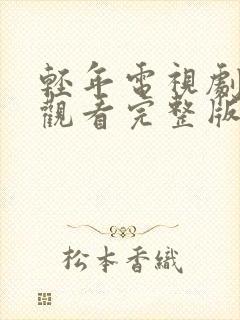 輕年電視劇
觀看完整版
松本香織